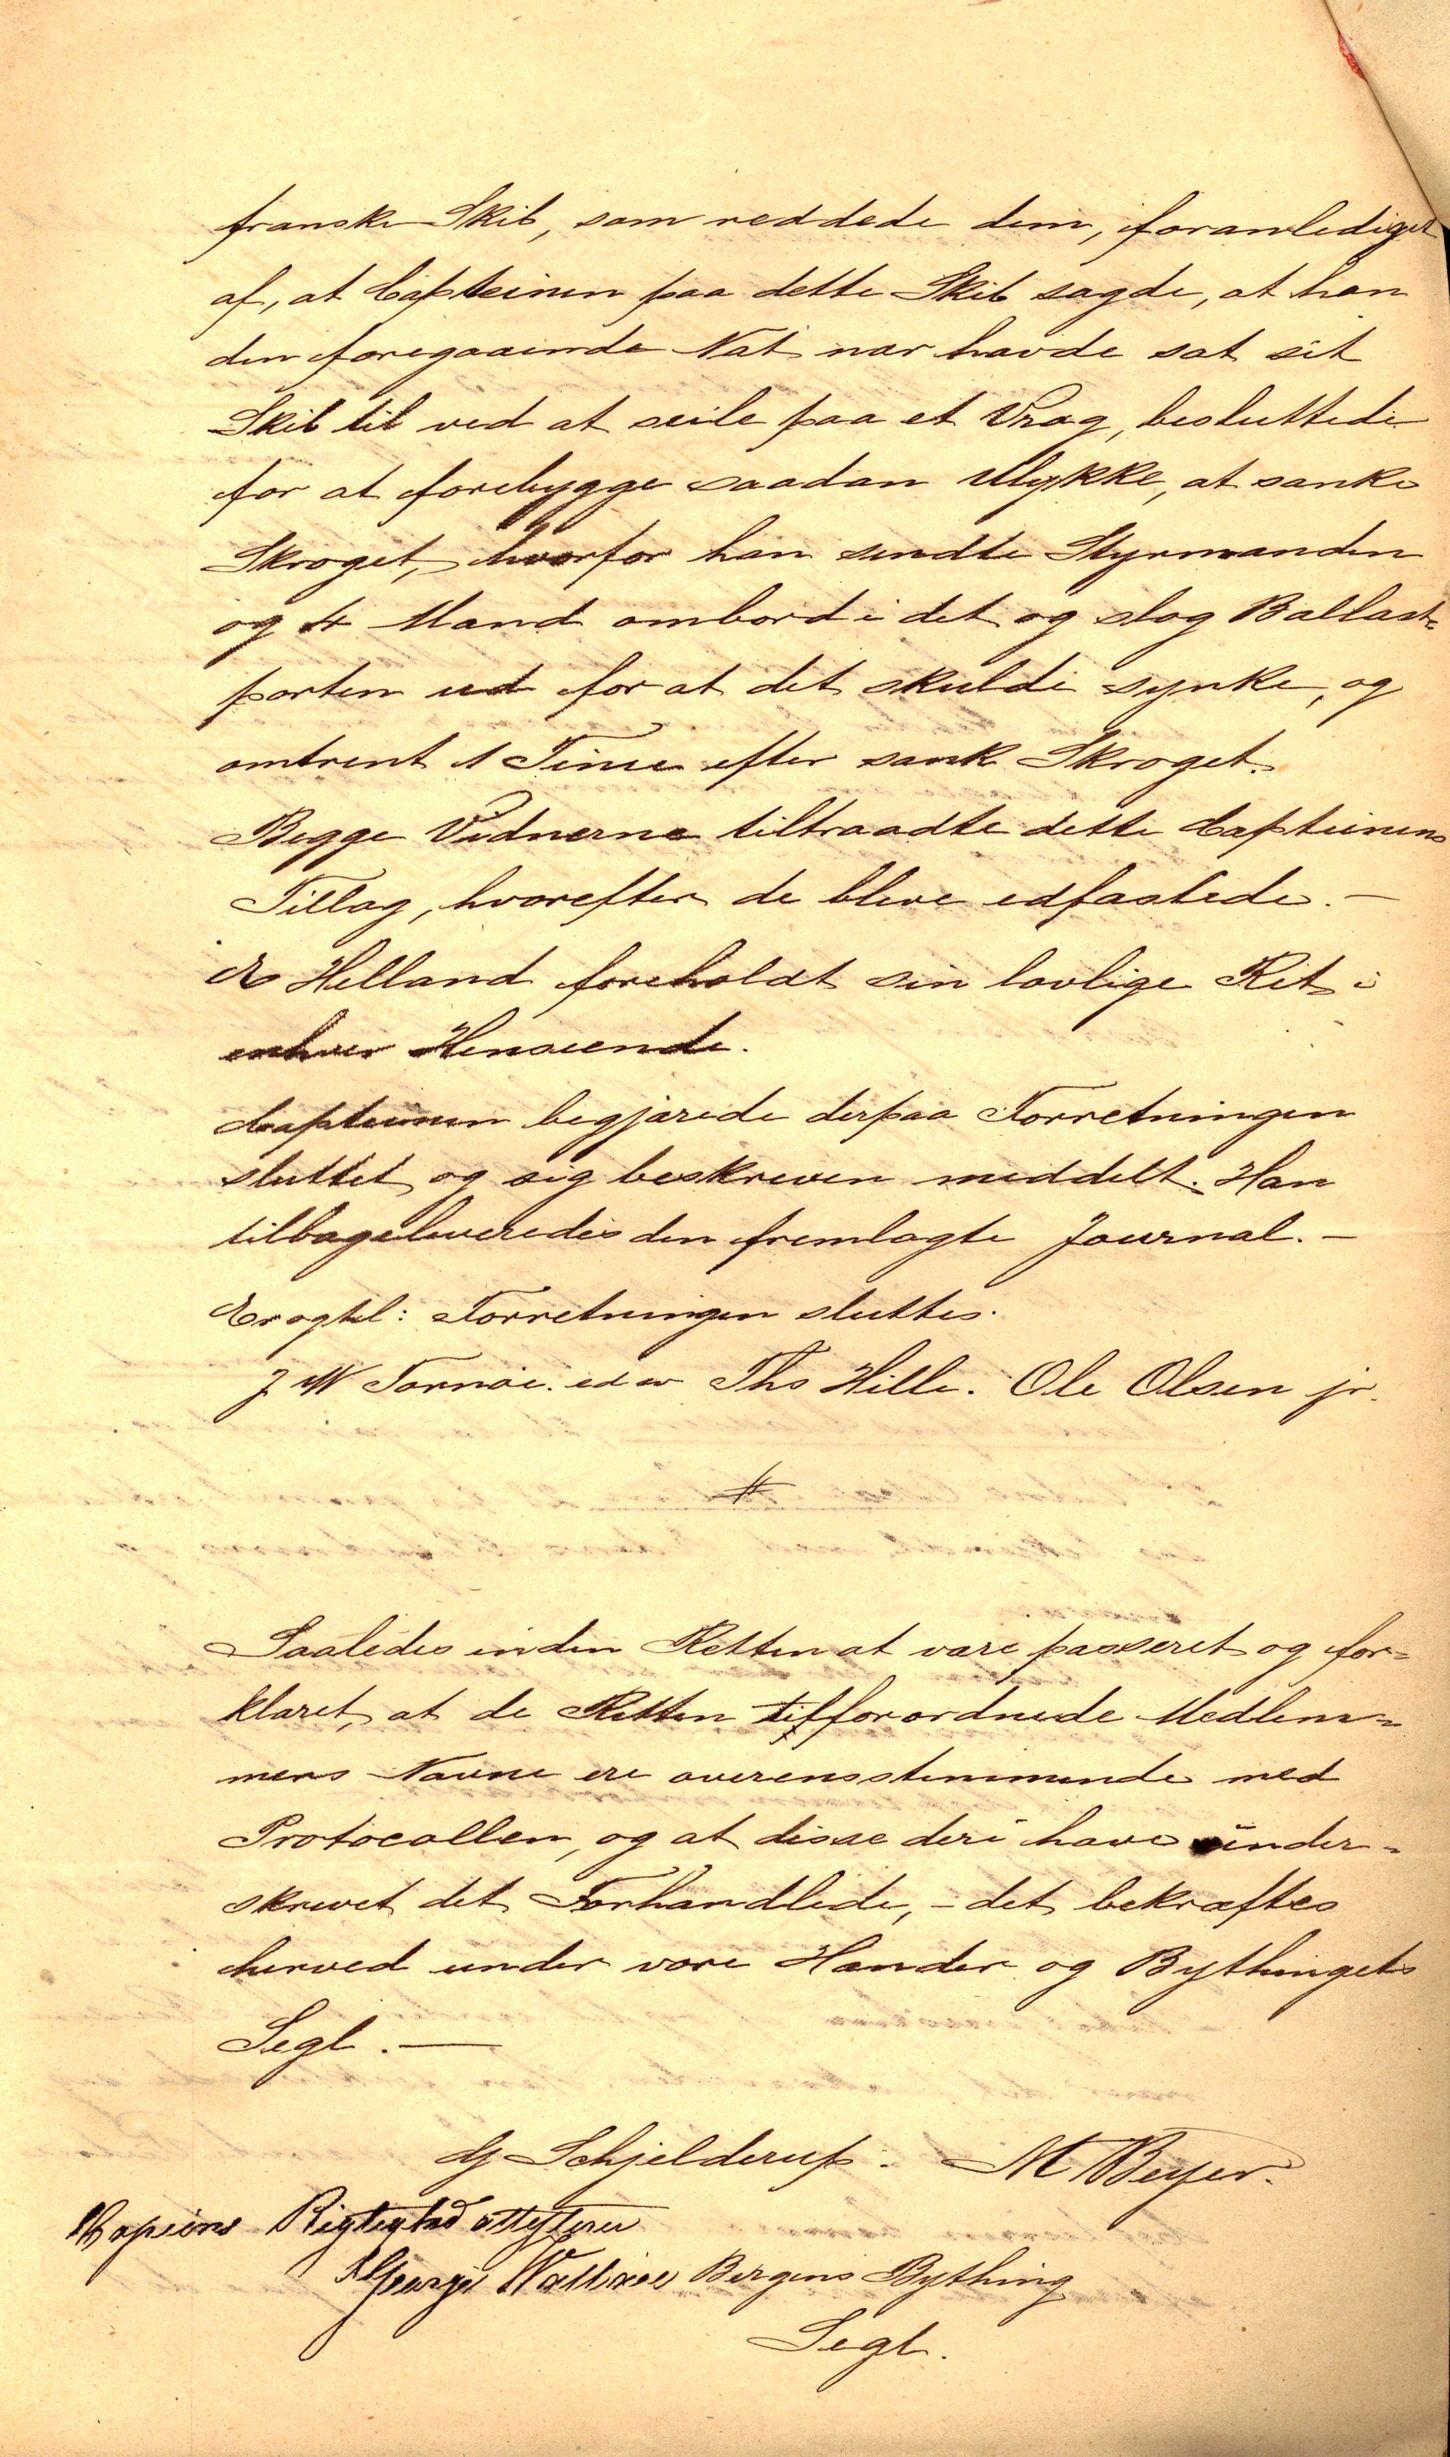 franske Skib, som reddede dem, foranlediget
af, at Capteinen paa dette Skib sagde, at han
den foregaaende Nat nær havde sat sit
Skib til ved at seile paa et Vrag, besluttede
for at forebygge saadan Ulykke, at sænke
Skroget, hvorfor han sendte Styrmanden
og 4 Mand ombord i det og slog Ballast=
porten ud for at det skulde synke, og
omtrent 1 Time efter sank Skroget.
Begge Vidnerne tiltraadte dette Capteinens
Tillæg, hvorefter de bleve edfæstede. —
Helland foreholdt sin lovlige Ret i
enhver Henseende.
Capteinen begjærede derpaa Forretningen
sluttet og sig beskreven meddelt. Han
tilbageleveredes den fremlagte Journal. —
Eragtet: Forretningen sluttes.
J W Tornøe. Ths Hille. Ole Olsen jr.
Saaledes inden Retten at være passeret og for=
klaret, at de Retten tilforordnede Medlem=
mers Navne ere overensstemmende med
Protocollen, og at disse deri have under=
skrevet det Forhandlede, - det bekræftes
herved under vore Hænder og Bythingets
Segl. —
G Schjelderup. M Beyer.
Copiens Rigtighed attesterer
Georg Wallace Bergens Bything
Segl.